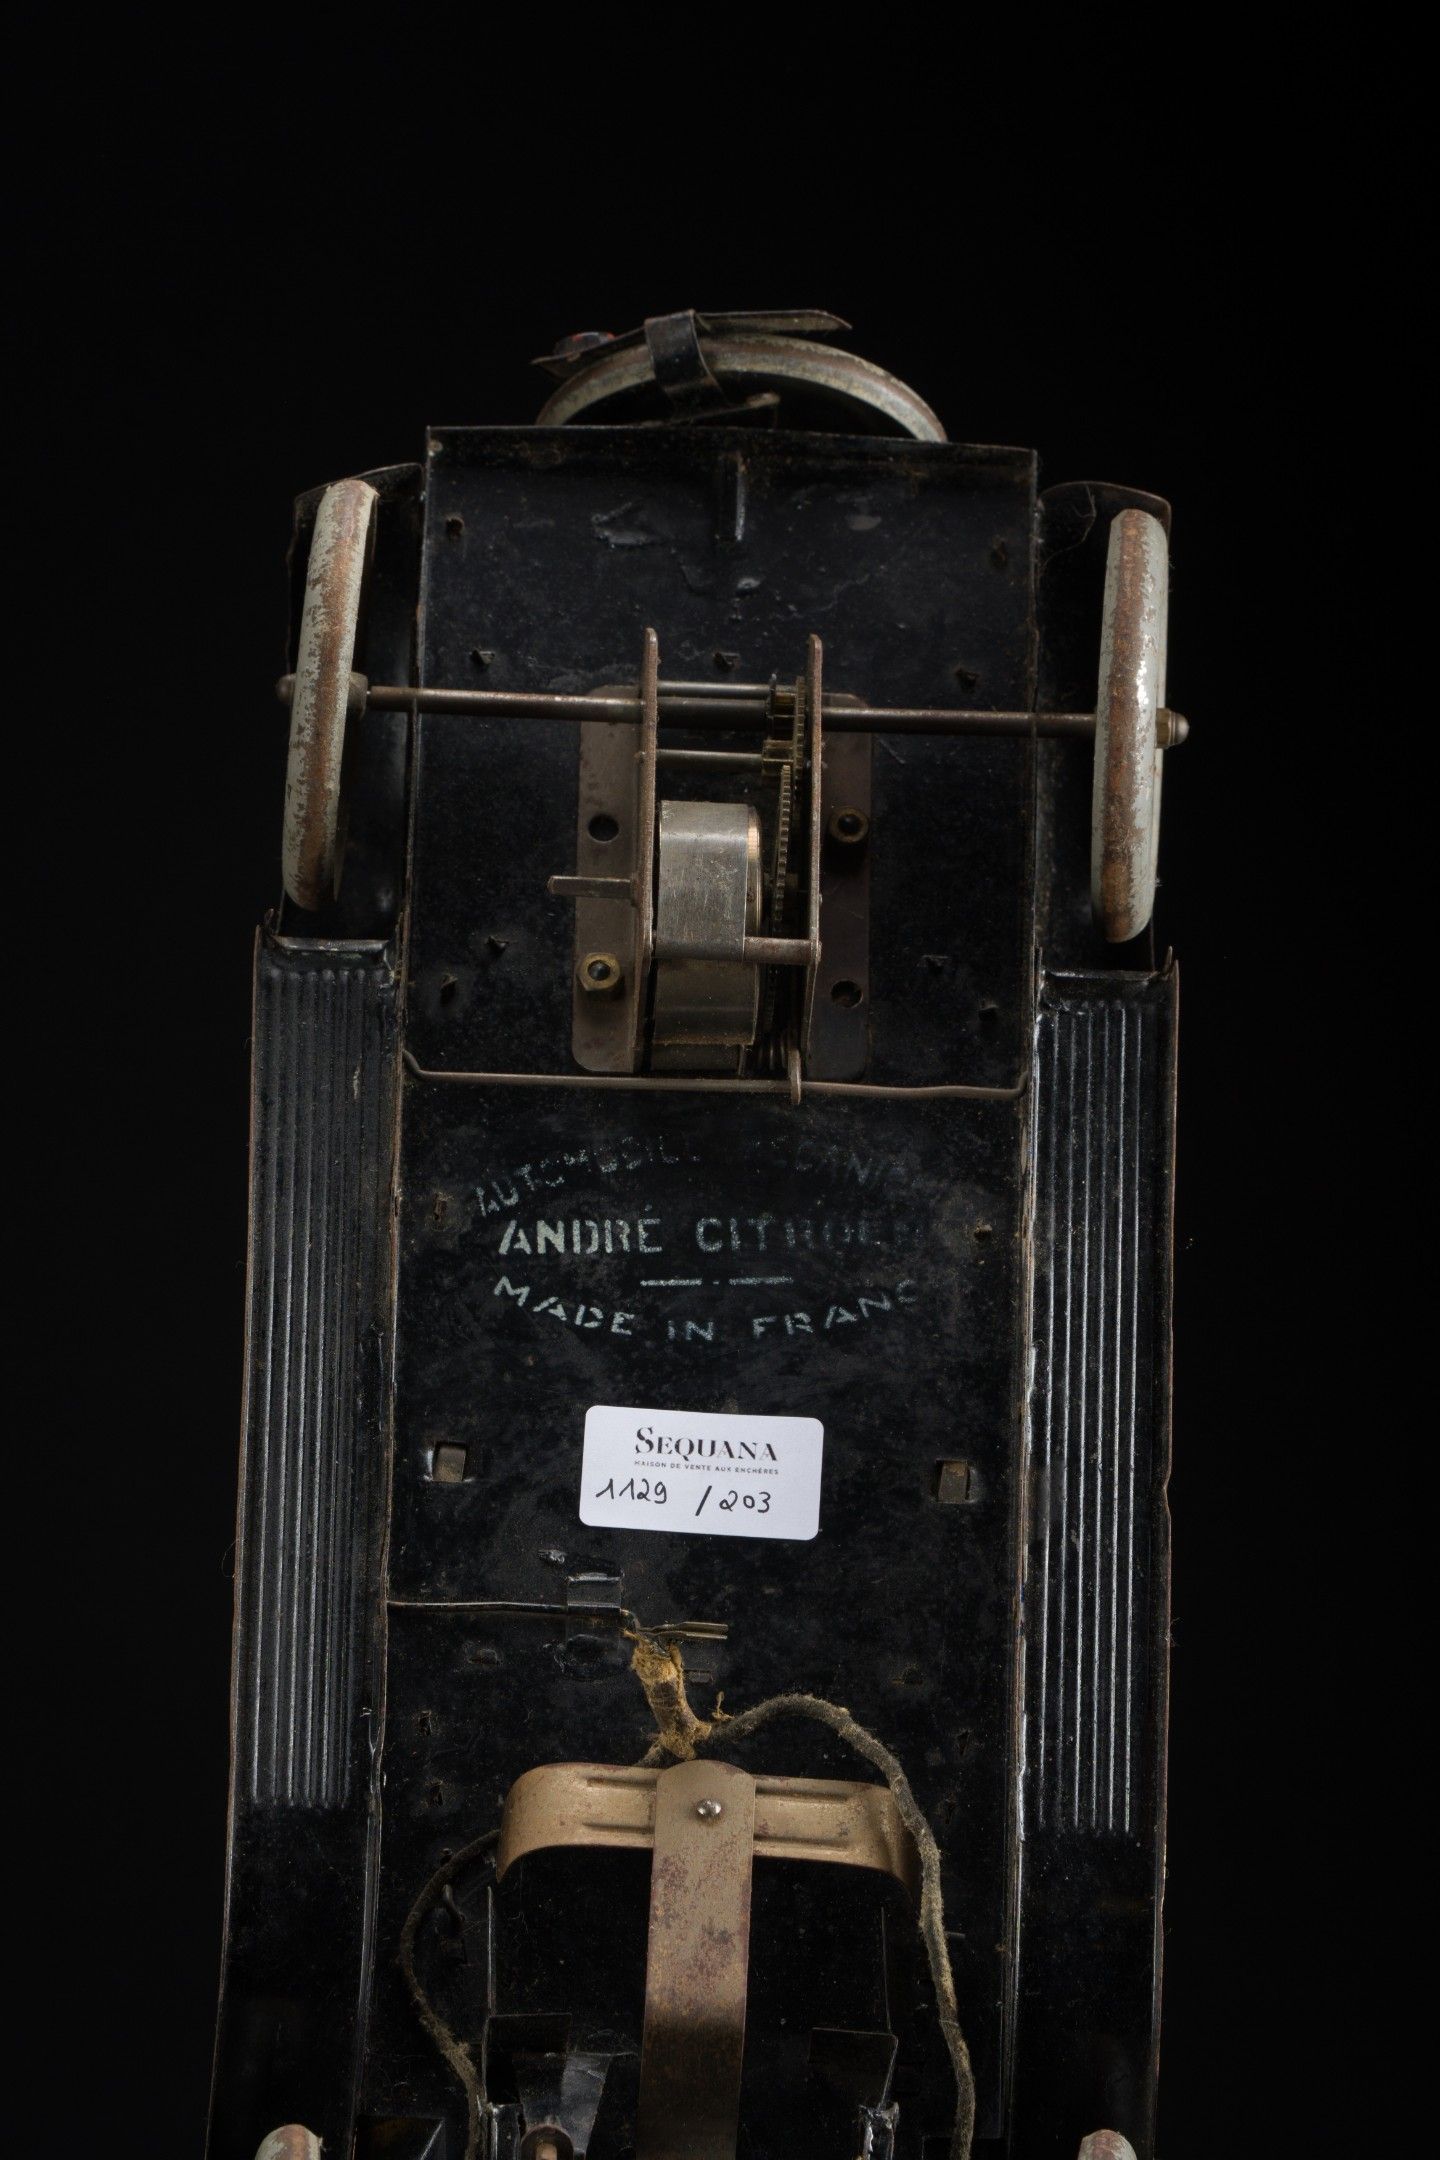 AUTOMOBILE MÉCANIQUE
ANDRÉ CITROËN
MADE IN FRANCE
SEQUANA
MAISON DE VENTE AUX ENCHÈRES
1129 / 203